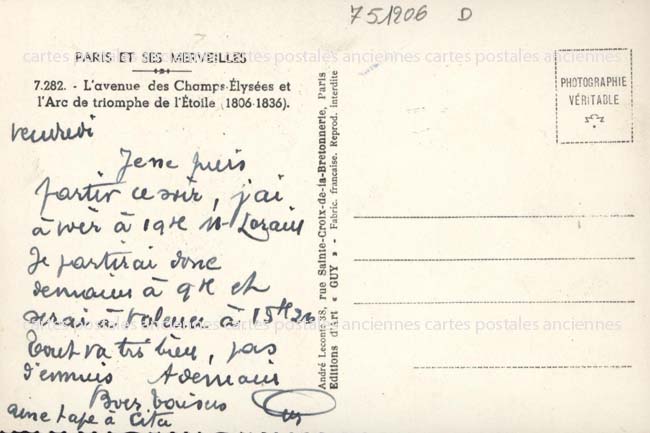 751906 D
PARIS ET SES MERVEILLES
7.282. - L'avenue des Champs-Élysées et
l'Arc de triomphe de l'Étoile (1806-1836).
cartes postales anciennes cartes postales anciennes cartes postales anciennes
PHOTOGRAPHIE
VÉRITABLE
André Leconte, 38, rue Sainte-Croix-de-la-Bretonnerie, Paris
Editions d'Art « GUY » - Fabric. française. Reprod. interdite
Vendredi
Je ne puis
partir ce soir, j'ai
à voir à 19H
Je partirai donc
demain à 9H et
serai à Valence à 15H
cartes postales anciennes cartes postales anciennes cartes postales anciennes
Tout va très bien, pas
d'ennuis A demain
Bons baisers
à